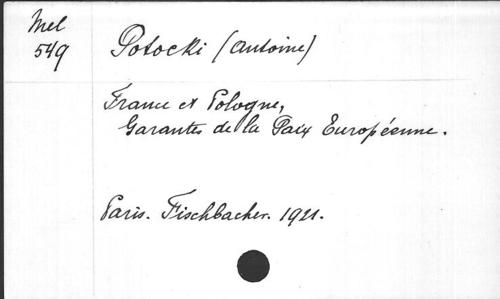 Mel
549
Potocki (Antoine)
France et Pologne,
Garantes de la Paix Européenne.
Paris. Fischbacher. 1921.